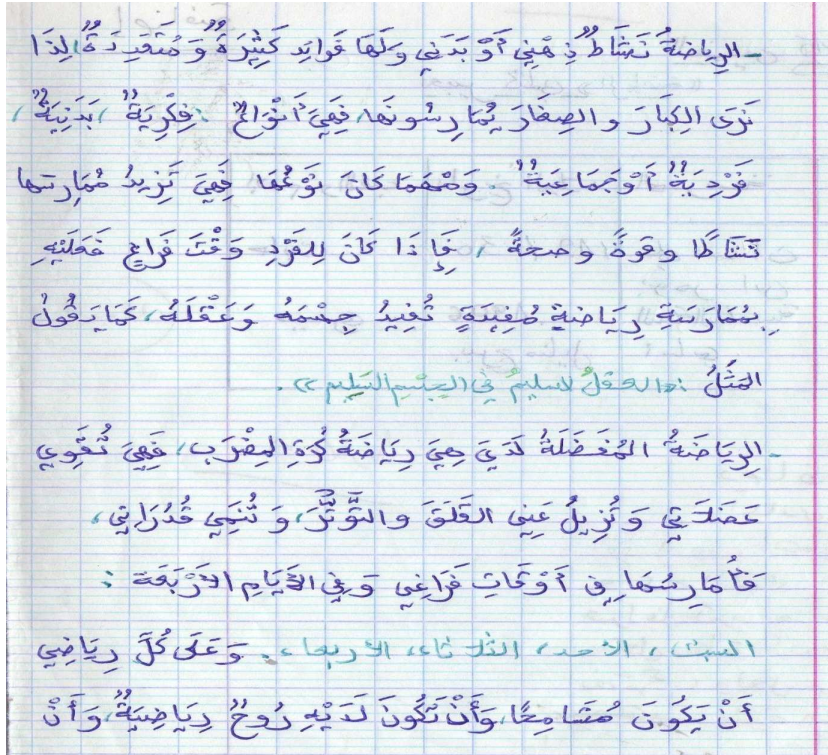 - الرِيَاضَةُ نَشَاطٌ ذِهْنِي أَوْ بَدَنِي وَلَهَا فَوَائِد كَثِيرَةٌ وَ مُتَعَدِدَةٌ، لِذَا
نَرَى الكِبَارَ و الصِغَارَ يُمَارِسُونَهَا، فَهِيَ أَنْوَاعٌ : فِكْرِيَةٌ، بَدَنِيَةٌ،
فَرْدِيَةٌ أَوْ جَمَاعِيَةٌ. وَمَهْمَا كَانَ نَوْعُهَا فَهِيَ تَزِيدُ مُمَارِسَها
نَشَاطًا و قوةً و صحةً، فَإِذَا كَانَ لِلفَرْدِ وَقْتَ فَرَاغٍ فَعَلَيْهِ
بِمُمَارَسَةِ رِيَاضَةٍ مُفِيدَةٍ تُفِيدُ جِسْمَهُ وَعَقْلَهُ، كَمَا يَقُولُ
المَثَلُ : «العقلُ السليمُ في الجِسْمِ السَلِيمِ».
- الرِيَاضَةُ المُفَضَلَةُ لَدَيَ هِيَ رِيَاضَةُ كُرَةِ المِضْرَبِ، فَهِيَ تُقَوِي
عَضَلَاتِي وَ تُزِيلُ عَنِي القَلَقَ والتَوَتُّرَ، وَ تُنَمِي قُدُرَاتِي،
فَأُمَارِسُهَا فِي أَوْقَاتِ فَرَاغِي وَ فِي الأَيَامِ الأَرْبَعَة :
السبت، الأحد، الثلاثاء، الأربعاء. وَعَلَى كُلِّ رِيَاضِي
أَنْ يَكُونَ مُتَسَامِحًا، وَأَنْ تَكُونَ لَدَيْهِ رُوحٌ رِيَاضِيَةٌ، وَ أَنْ